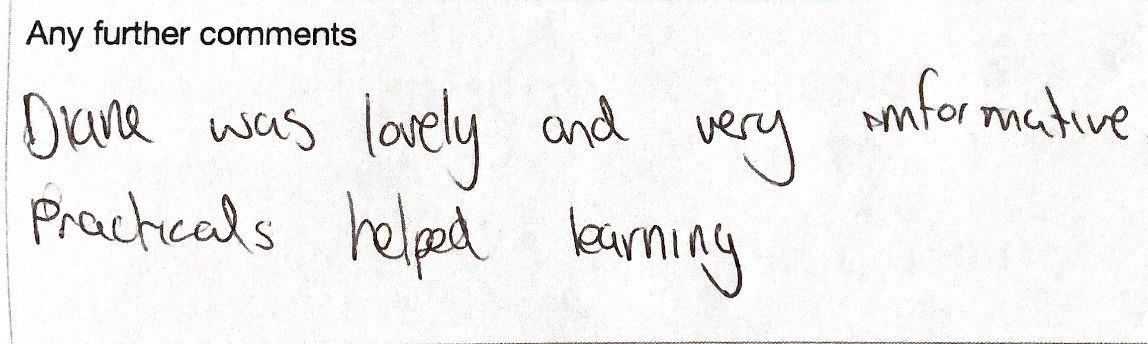 Any further comments
Diane was lovely and very informative
Practicals helped learning